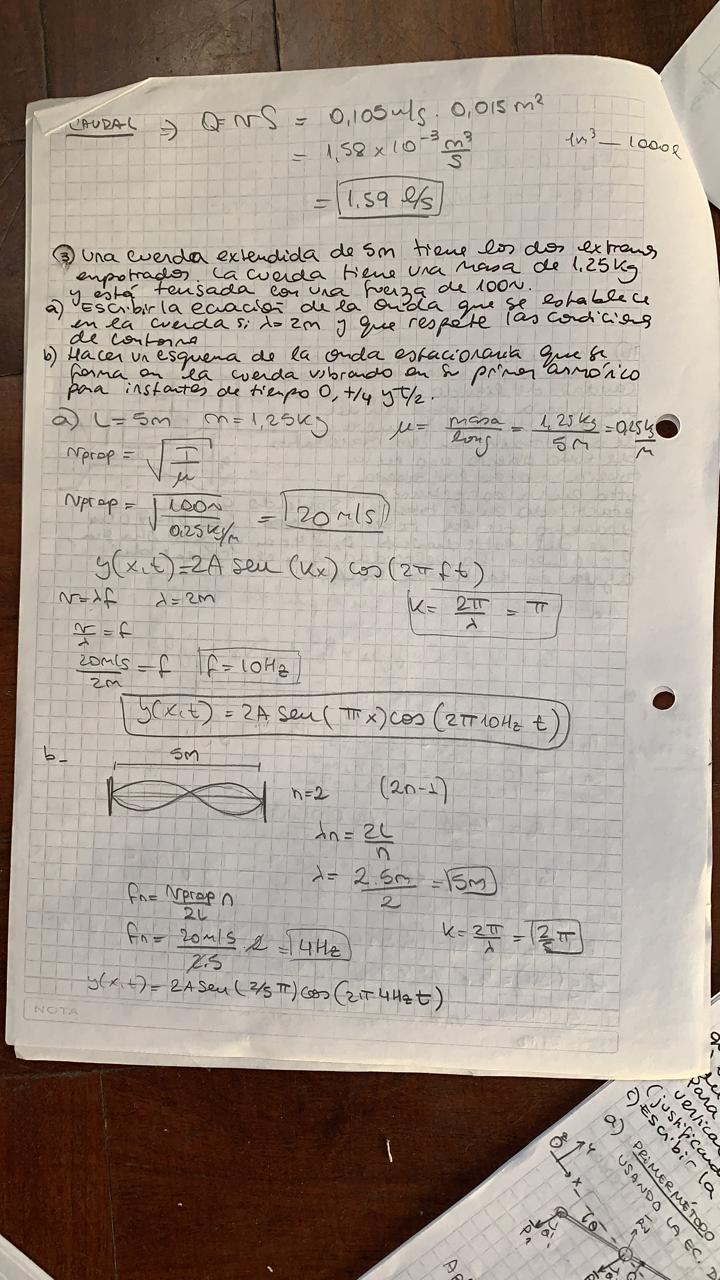 CAUDAL ⇒ Q=vS = 0,105 m/s . 0,015 m²
= 1,58 x 10⁻³ m³/s
1m³ — 1000 l
= 1.59 l/s
③ Una cuerda extendida de 5m tiene los dos extremos
empotrados. La cuerda tiene una masa de 1,25 kg
y está tensada con una fuerza de 100N.
a) Escribir la ecuación de la onda que se establece
en la cuerda si λ=2m y que respete las condiciones
de contorno
b) Hacer un esquema de la onda estacionaria que se
forma en la cuerda vibrando en su primer armónico
para instantes de tiempo 0, t/4 y t/2.
a) L=5m m=1,25kg μ= masa/long = 1,25kg/5M = 0,25 kg/M
Vprop = √(T/μ)
Vprop = √(100N/0,25 kg/m) = 20 m/s
y(x,t)=2A sen (Kx) cos(2π f t)
v=λf λ=2m K= 2π/λ = π
v/λ = f
20m/s/2m = f f=10Hz
y(x,t) = 2A sen( πx) cos (2π 10Hz t)
b-
5m
n=2 (2n-1)
λn = 2L/n
λ= 2.5m/2 = 5m
fn= Vprop/2L n
fn= 20m/s/2.5 2 = 4Hz
K= 2π/λ = 2/5 π
y(x,t) = 2A sen( 2/5 π) cos (2π 4Hz t)
NOTA
para
vertica
(justificand
c) Escribir la
a) PRIMER MÉTODO
USANDO LA EC.